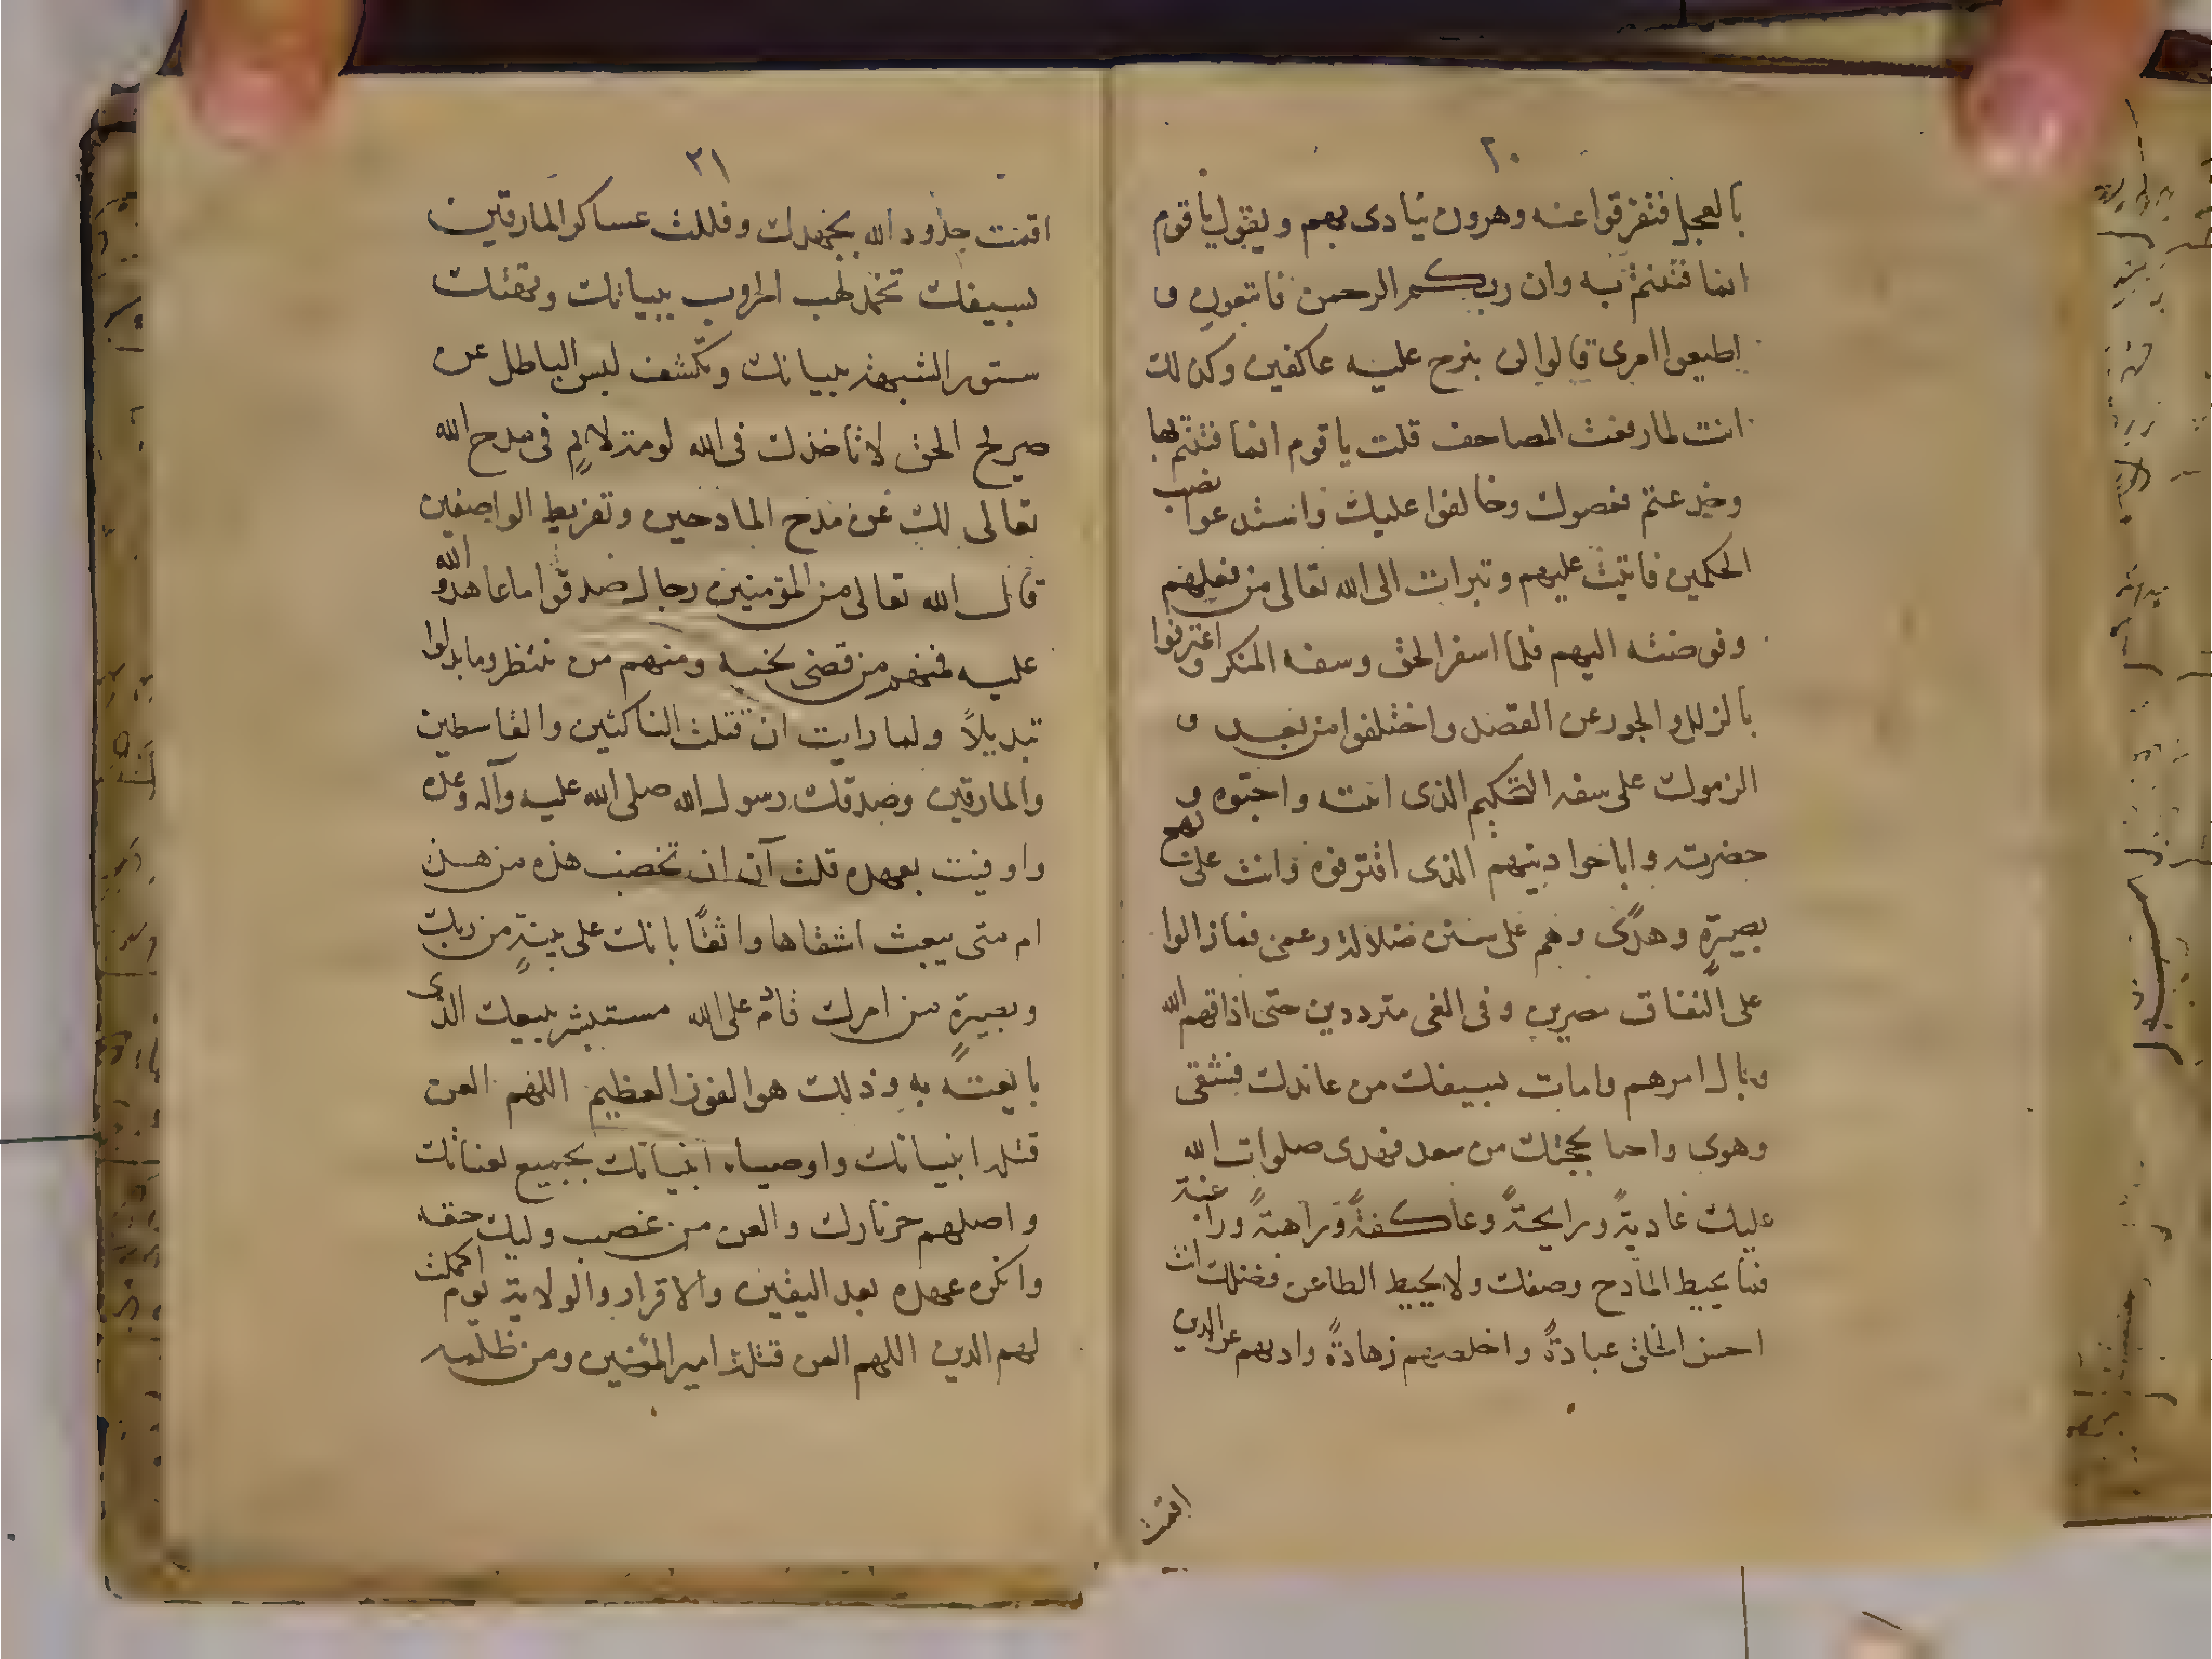 ٢٠
بالعجل فتفرقوا عنه وهرون ينادى بهم ويقول يا قوم
انما فتنتم به وان ربكم الرحمن فاتبعون و
اطيعوا امرى قالوا لن نبرح عليه عاكفين وكذلك
انت لما رفعت المصاحف قلت يا قوم انما فتنتم بها
وخدعتم فعصوك وخالفوا عليك واستدعوا نصب
الحكمين فابيت عليهم وتبرات الى الله تعالى من فعلهم
وفوضته اليهم فلما اسفر الحق وسفه المنكر واعترفوا
بالزلل والجور عن القصد واختلفوا من بعده و
الزموك على سفه التحكيم الذى ابيته واحبوه و
حضرته واباحوا ذنبهم الذى اقترفوه وانت على نهج
بصيرة وهدًى وهم على سنن ضلالة وعمى فما زالوا
على النفاق مصرين وفى الغى مترددين حتى اذاقهم الله
وبال امرهم وامات بسيفك من عاندك فشقى
وهوى واحيا بحجتك من سعد فهدى صلوات الله
عليك غادية ورايحة وعاكفة وراهبة وراغبة
فما يحيط المادح وصفك ولا يحيط الطاعن فضلك انت
احسن الخلق عبادةً واخلصهم زهادةً واذبهم عن الدين
اقمت
٢١
اقمت حدود الله بجهدك وفللت عساكر المارقين
بسيفك تخمد لهب الحروب ببيانك وتهتك
ستور الشبهة ببيانك وتكشف لبس الباطل عن
صريح الحق لا تاخذك فى الله لومة لائم فى مدح الله
تعالى لك غن مدح المادحين وتقريظ الواصفين
قال الله تعالى من المؤمنين رجال صدقوا ما عاهدوا الله
عليه فمنهم من قضى نحبه ومنهم من ينتظر وما بدلوا
تبديلاً ولما رايت ان قتلت الناكثين والقاسطين
والمارقين وصدقك رسول الله صلى الله عليه وآله وعده
واوفيت بعهده قلت آن ان تخضب هذه من هذه
ام متى يبعث اشقاها واثقًا بانك على بينةٍ من ربك
وبصيرةٍ من امرك قادم على الله مستبشر ببيعك الذى
بايعته به وذلك هو الفوز العظيم اللهم العن
قتلة انبيائك واوصياء انبيائك بجميع لعناتك
واصلهم حر نارك والعن من غصب وليك حقه
وانكر عهده بعد اليقين والاقرار والولاية يوم اكملت
لهم الدين اللهم العن قتلة امير المؤمنين ومن ظلمه